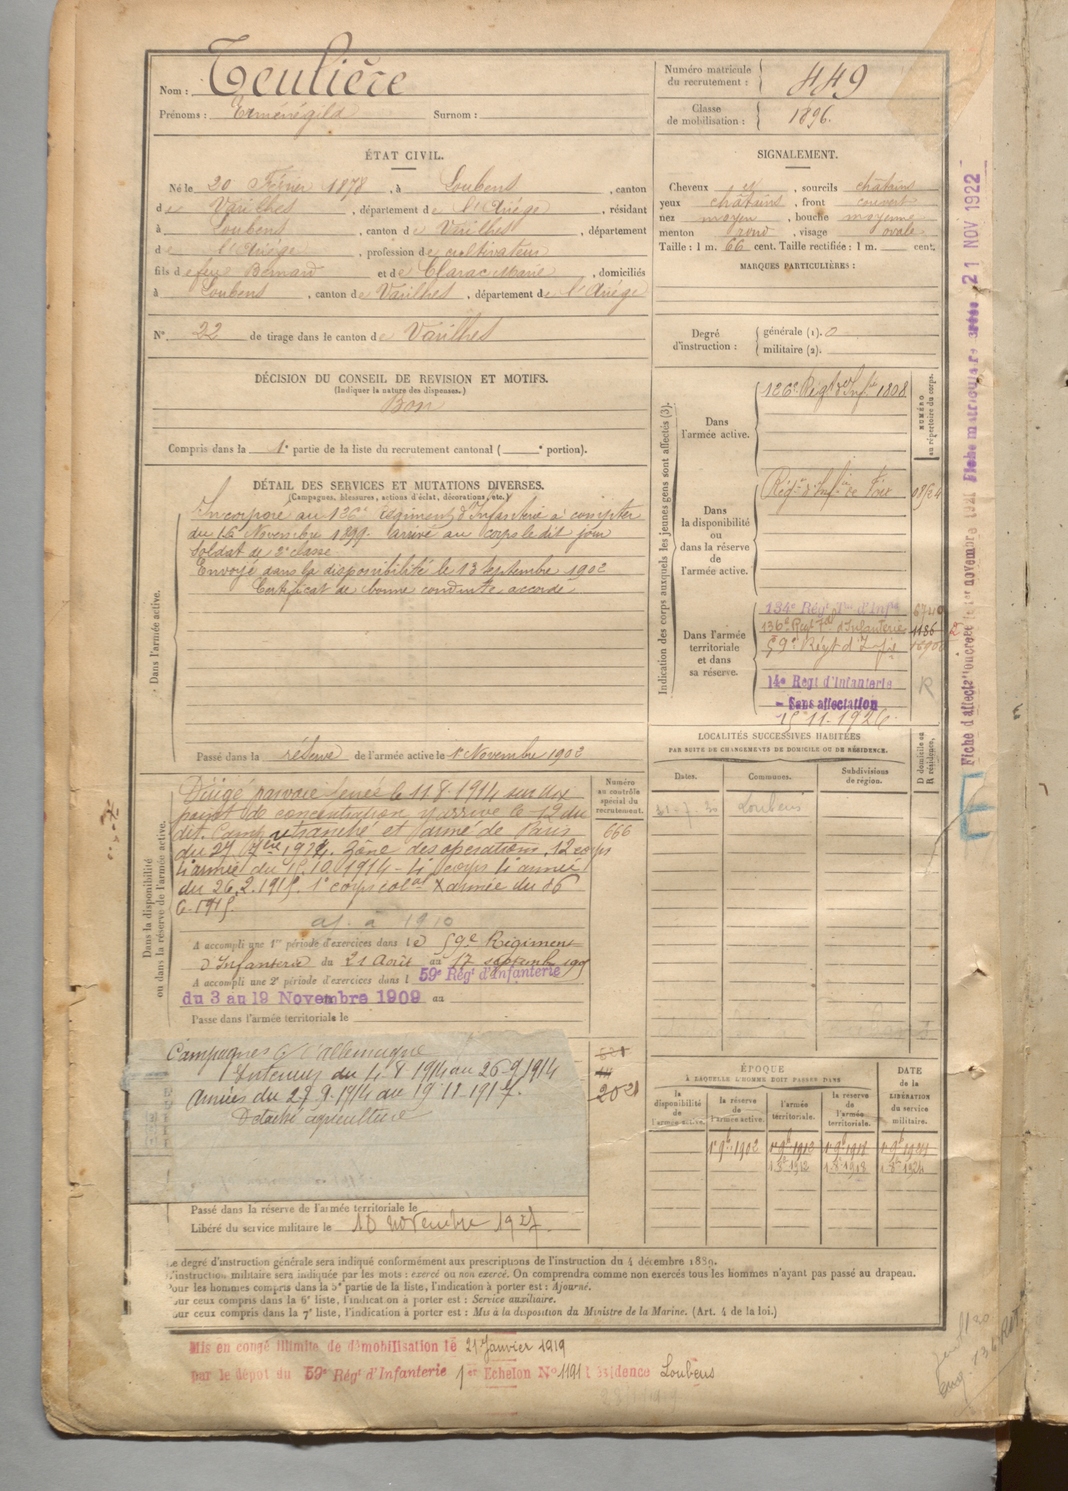 Nom : Teulière
Prénoms : Erménégild Surnom :
Numéro matricule du recrutement : 449
Classe de mobilisation : 1896.
ÉTAT CIVIL.
Né le 20 Février 1878, à Loubens, canton
de Varilhes, département de l'Ariége, résidant
à Loubens, canton de Varilhes, département
de l'Ariége, profession de cultivateur
fils de feu Bernard et de Clarac Marie, domiciliés
à Loubens, canton de Varilhes, département de l'Ariége
N° 22 de tirage dans le canton de Varilhes
SIGNALEMENT.
Cheveux et, sourcils châtains
yeux châtains, front couvert
nez moyen, bouche moyenne
menton rond, visage ovale.
Taille : 1 m. 66 cent. Taille rectifiée : 1 m. cent.
MARQUES PARTICULIÈRES :
Degré d'instruction : générale (1). 0
militaire (2).
DÉCISION DU CONSEIL DE REVISION ET MOTIFS.
(Indiquer la nature des dispenses.)
Bon
Compris dans la 1e partie de la liste du recrutement cantonal ( e portion).
DÉTAIL DES SERVICES ET MUTATIONS DIVERSES.
(Campagnes, blessures, actions d'éclat, décorations, etc.)
Dans l'armée active.
Incorporé au 126e régiment d'Infanterie à compter
du 16 Novembre 1899. arrivé au corps le dit jour
soldat de 2e classe
Envoyé dans la disponibilité le 13 Septembre 1902
Certificat de bonne conduite accordé
Passé dans la réserve de l'armée active le 1er Novembre 1902
Indication des corps auxquels les jeunes gens sont affectés (3).
NUMÉRO au répertoire du corps.
Dans l'armée active.
126e Régt d'Inf. 1898
Dans la disponibilité ou dans la réserve de l'armée active.
Régt d'Infie de Foix
Dans l'armée territoriale et dans sa réserve.
134e Régt Ter d'Infie
136e Régt Tal d'Infanterie 1136
59e Régt d'Infie
14e Régt d'Infanterie R
Sans affectation
15-11-1926.
LOCALITÉS SUCCESSIVES HABITÉES
PAR SUITE DE CHANGEMENTS DE DOMICILE OU DE RÉSIDENCE.
Dates. Communes. Subdivisions de région. D domicile ou R résidence.
Loubens
Dans la disponibilité ou dans la réserve de l'armée active.
Numéro au contrôle spécial du recrutement.
666
Dirigé par voie ferrée le 11.8.1914 sur un
point de concentration y arrive le 12 du
dit. Camp retranché et armé de Paris
du 27 7bre 1914. Zône des opérations, 12 corps
4 armée du 15.10.1914 - 4 corps 4 armée
du 26.2.1915. 1e corps colal X armée du 16
6.1915.
A accompli une 1re période d'exercices dans le 59e Régiment
d'Infanterie du 21 Août au 17 septembre 1905
A accompli une 2e période d'exercices dans l 59e Régt d'Infanterie
du 3 au 19 Novembre 1909 au
Passé dans l'armée territoriale le
Campagnes C. l'allemagne
Intérieur du 4-8-1914 au 26-9 1914
Armées du 27.9.1914 au 19 11 1917.
Détaché agriculture
Passé dans la réserve de l'armée territoriale le
Libéré du service militaire le 10 novembre 1927.
ÉPOQUE
À LAQUELLE L'HOMME DOIT PASSER DANS
la disponibilité de l'armée active. la réserve de l'armée active. l'armée territoriale. la réserve de l'armée territoriale.
DATE de la LIBÉRATION du service militaire.
1er 9bre 1902
Le degré d'instruction générale sera indiqué conformément aux prescriptions de l'instruction du 4 décembre 1889.
L'instruction militaire sera indiquée par les mots : exercé ou non exercé. On comprendra comme non exercés tous les hommes n'ayant pas passé au drapeau.
Pour les hommes compris dans la 5e partie de la liste, l'indication à porter est : Ajourné.
Pour ceux compris dans la 6e liste, l'indication à porter est : Service auxiliaire.
Pour ceux compris dans la 7e liste, l'indication à porter est : Mis à la disposition du Ministre de la Marine. (Art. 4 de la loi.)
Mis en congé illimité de démobilisation le 21 Janvier 1919
par le dépôt du 59e Régt d'Infanterie 1er Echelon N° 1191 résidence Loubens
21 NOV 1922
E